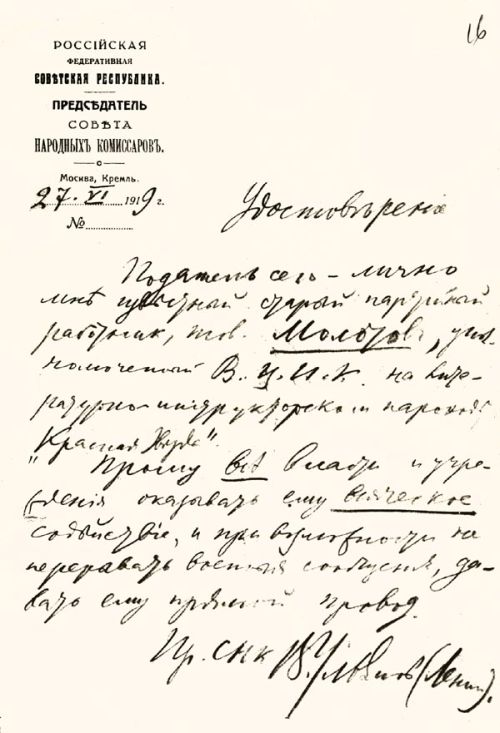 16
РОССІЙСКАЯ
ФЕДЕРАТИВНАЯ
СОВѢТСКАЯ РЕСПУБЛИКА.
ПРЕДСѢДАТЕЛЬ
СОВѢТА
НАРОДНЫХЪ КОМИССАРОВЪ.
Москва, Кремль.
27. VI 1919 г.
№
Удостовѣреніе
Податель сего – лично
мнѣ известный старый партийный
работник, тов. Молотов, упол-
номоченный В. Ц. И. К. на лите-
ратурно-инструкторском пароходе
"Красная Звезда".
Прошу всѣ власти и учре-
ждения оказывать ему всяческое
содѣйствіе, и при возможности не
прерывать военных сообщения, да-
вать ему прямой провод.
Пр. СНК В. Ульянов (Ленин).